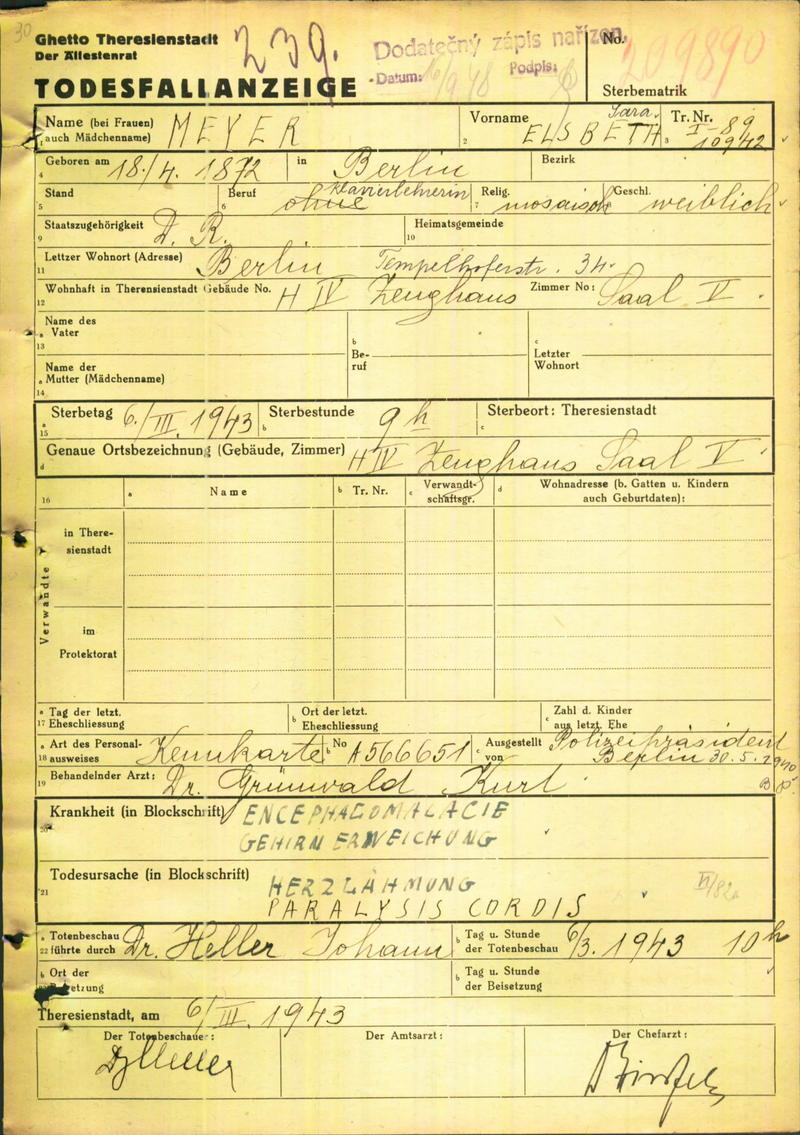 30
Ghetto Theresienstadt
Der Ältestenrat
TODESFALLANZEIGE
239.
Dodatečný zápis nařízen.
Datum: 16/9 48 Podpis:
No.
209890
Sterbematrik
Name (bei Frauen) auch Mädchenname) MEYER
1
Vorname Sara. ELSBETH
2
Tr. Nr. I-89
10942
3
Geboren am 18./4. 1872 in Berlin Bezirk
4
Stand Beruf ohne Klavierlehrerin Relig. mosaisch Geschl. weiblich
5 6 7
Staatszugehörigkeit D. R. Heimatsgemeinde
9 10
Lettzer Wohnort (Adresse) Berlin Tempelhoferstr. 34.
11
Wohnhaft in Theresienstadt Gebäude No. H IV Zeughaus Zimmer No: Saal V.
12
Name des
a Vater
13
b
Be-
ruf
c
Letzter
Wohnort
Name der
a Mutter (Mädchenname)
14
Sterbetag 6./III. 1943 Sterbestunde 9 h Sterbeort: Theresienstadt
a 15 b c
Genaue Ortsbezeichnung (Gebäude, Zimmer) H IV Zeughaus Saal V
d
16 a Name b Tr. Nr. c Verwandt-
schaftsgr. d Wohnadresse (b. Gatten u. Kindern
auch Geburtdaten):
Verwandte
in There-
sienstadt
im
Protektorat
a Tag der letzt.
17 Eheschliessung
Ort der letzt.
b Eheschliessung
Zahl d. Kinder
c aus letzt. Ehe
a Art des Personal-
18 ausweises Kennkarte b No A566651 c Ausgestellt
von Polizeipräsident
Berlin 30.5.1940
Behandelnder Arzt: Dr. Grünwald Kurt
19
Krankheit (in Blockschrift) ENCEPHALOMALACIE
20 GEHIRNERWEICHUNG
Todesursache (in Blockschrift) HERZLÄHMUNG
21 PARALYSIS CORDIS
a Totenbeschau
22 führte durch Dr. Heller Johann b Tag u. Stunde
der Totenbeschau 6/3. 1943 10 h
b Ort der
b Tag u. Stunde
der Beisetzung
Theresienstadt, am 6/III. 1943
Der Totenbeschauer: Der Amtsarzt: Der Chefarzt: